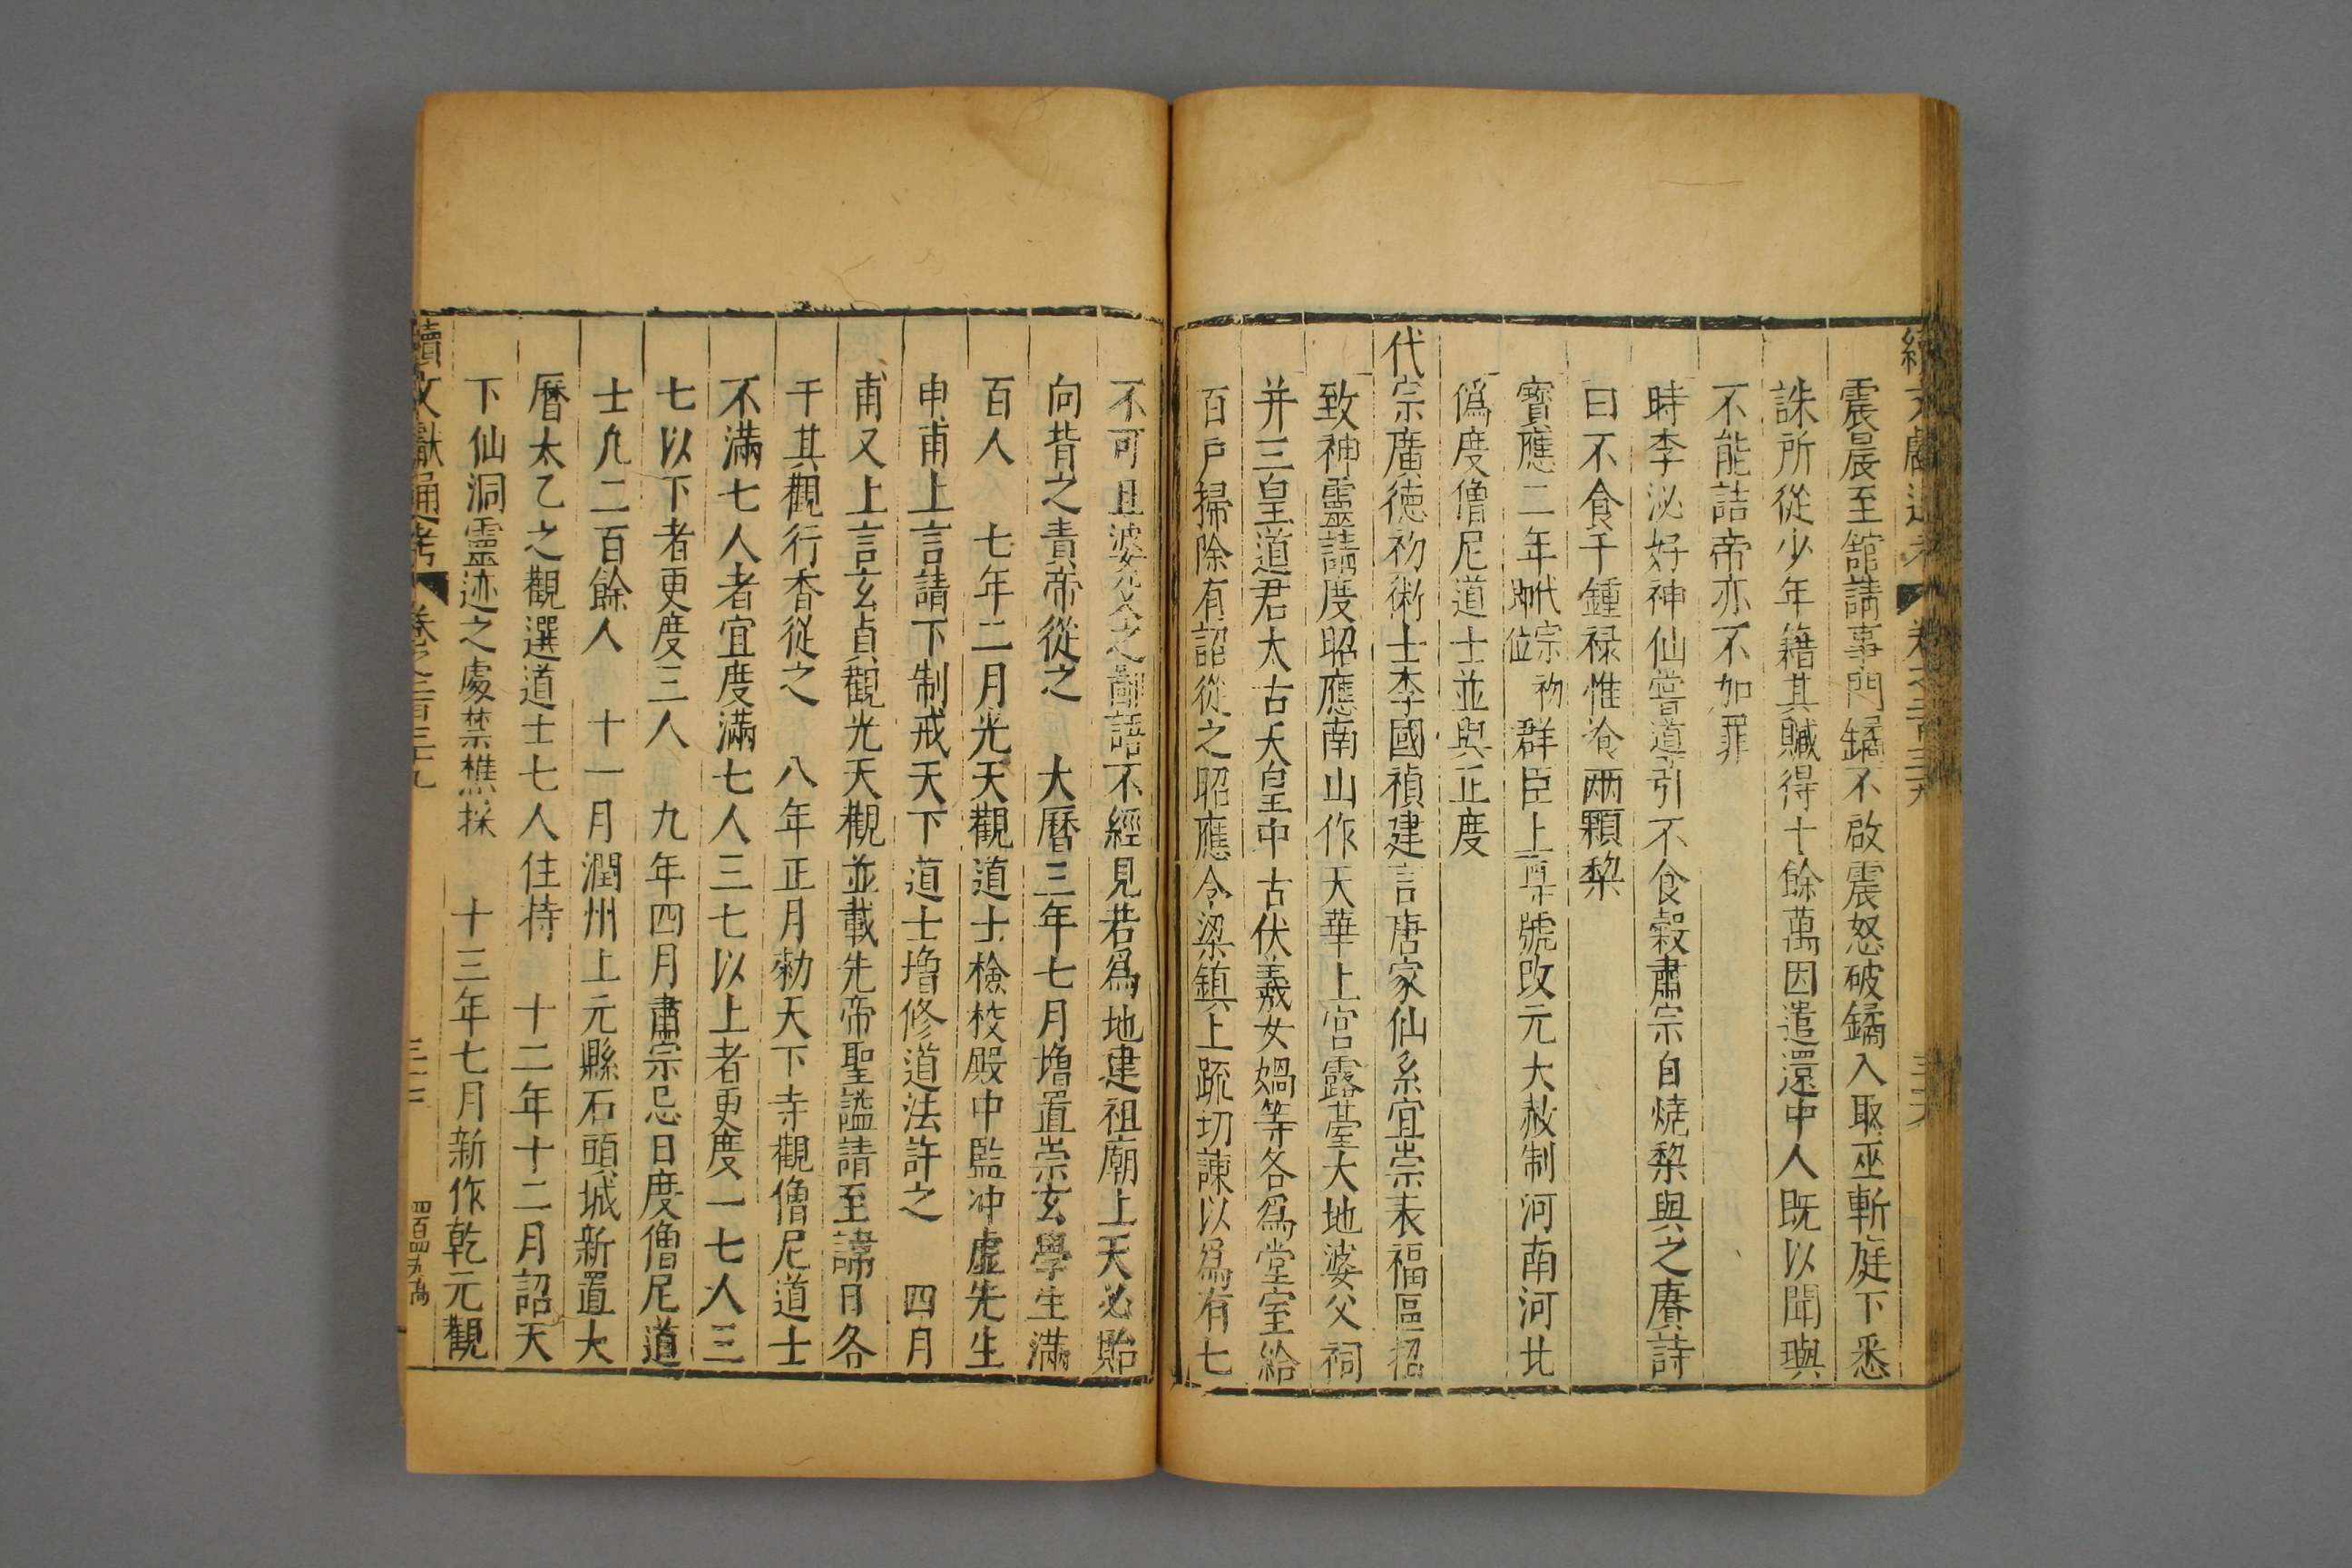 震晨至館請事門鐍不啟震怒破鐍入取巫斬庭下悉
誅所從少年籍其贓得十餘萬因遣還中人既以聞璵
不能詰帝亦不加罪
時李泌好神仙嘗道引不食穀肅宗自燒梨與之賡詩
曰不食千鍾祿惟飡兩顆梨
寶應二年代宗初即位群臣上尊號改元大赦制河南河北
偽度僧尼道士並與正度
代宗廣德初術士李國禎建言唐家仙系宜崇表福區招
致神靈請度昭應南山作天華上宮露䑓大地婆父祠
并三皇道君太古天皇中古伏羲女媧等各為堂室給
百戶掃除有詔從之昭應令梁鎮上疏切諫以為有七
不可且婆父之鄙語不經見若為地建祖廟上天必貽
向背之責帝從之 大曆三年七月增置崇玄學生滿
百人 七年二月光天觀道士檢校殿中監冲虛先生
申甫上言請下制戒天下道士增修道法許之 四月
甫又上言玄貞觀光天觀並載先帝聖謚請至諱日各
于其觀行香從之 八年正月勑天下寺觀僧尼道士
不滿七人者宜度滿七人三七以上者更度一七人三
七以下者更度三人 九年四月肅宗忌日度僧尼道
士凢二百餘人 十一月潤州上元縣石頭城新置大
曆太乙之觀選道士七人住持 十二年十二月詔天
下仙洞靈迹之處禁樵採 十三年七月新作乾元觀
續文獻通考 卷之二百三十九